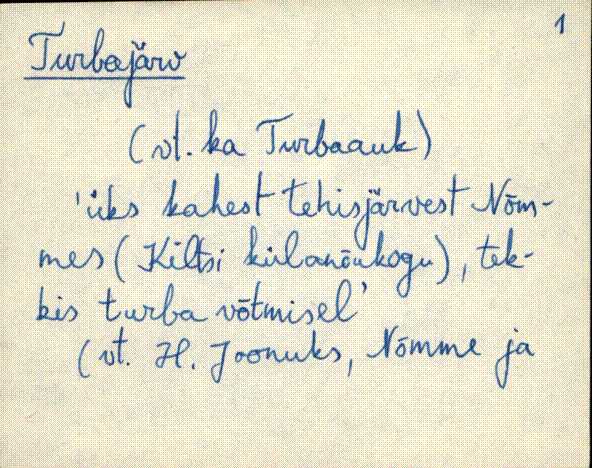 1
Turbajärv
(vt. ka Turbaauk)
'üks kahest tehisjärvest Nõm-
mes (Kiltsi külanõukogu), tek-
kis turba võtmisel'
(vt. H. Joonuks, Nõmme ja